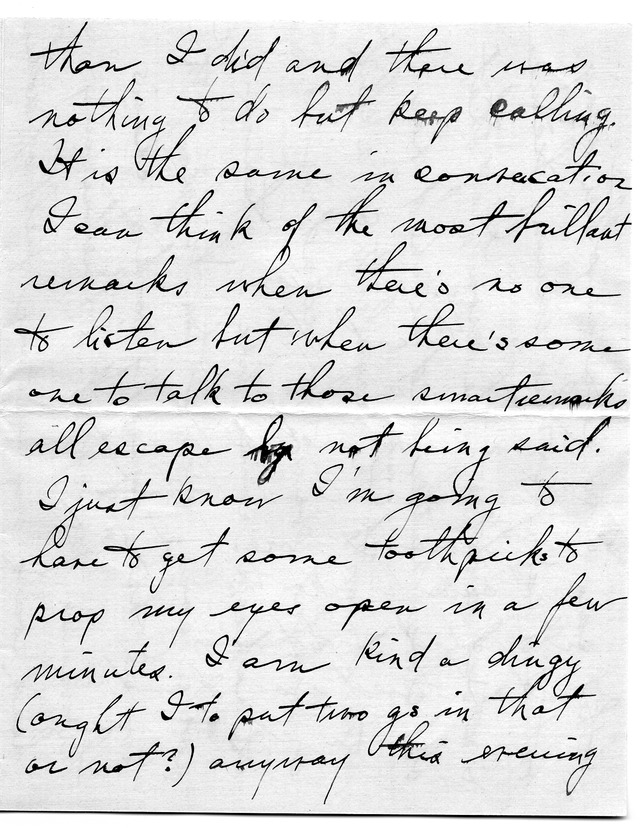 than I did and there was
nothing to do but keep calling.
It is the same in conversation
I can think of the most brillant
remarks when there's no one
to listen but when there's some
one to talk to those smart remarks
all escape by not being said.
I just know I'm going to
have to get some toothpicks to
prop my eyes open in a few
minutes. I am kind a dingy
(ought I to put two gs in that
or not?) anyway this evening